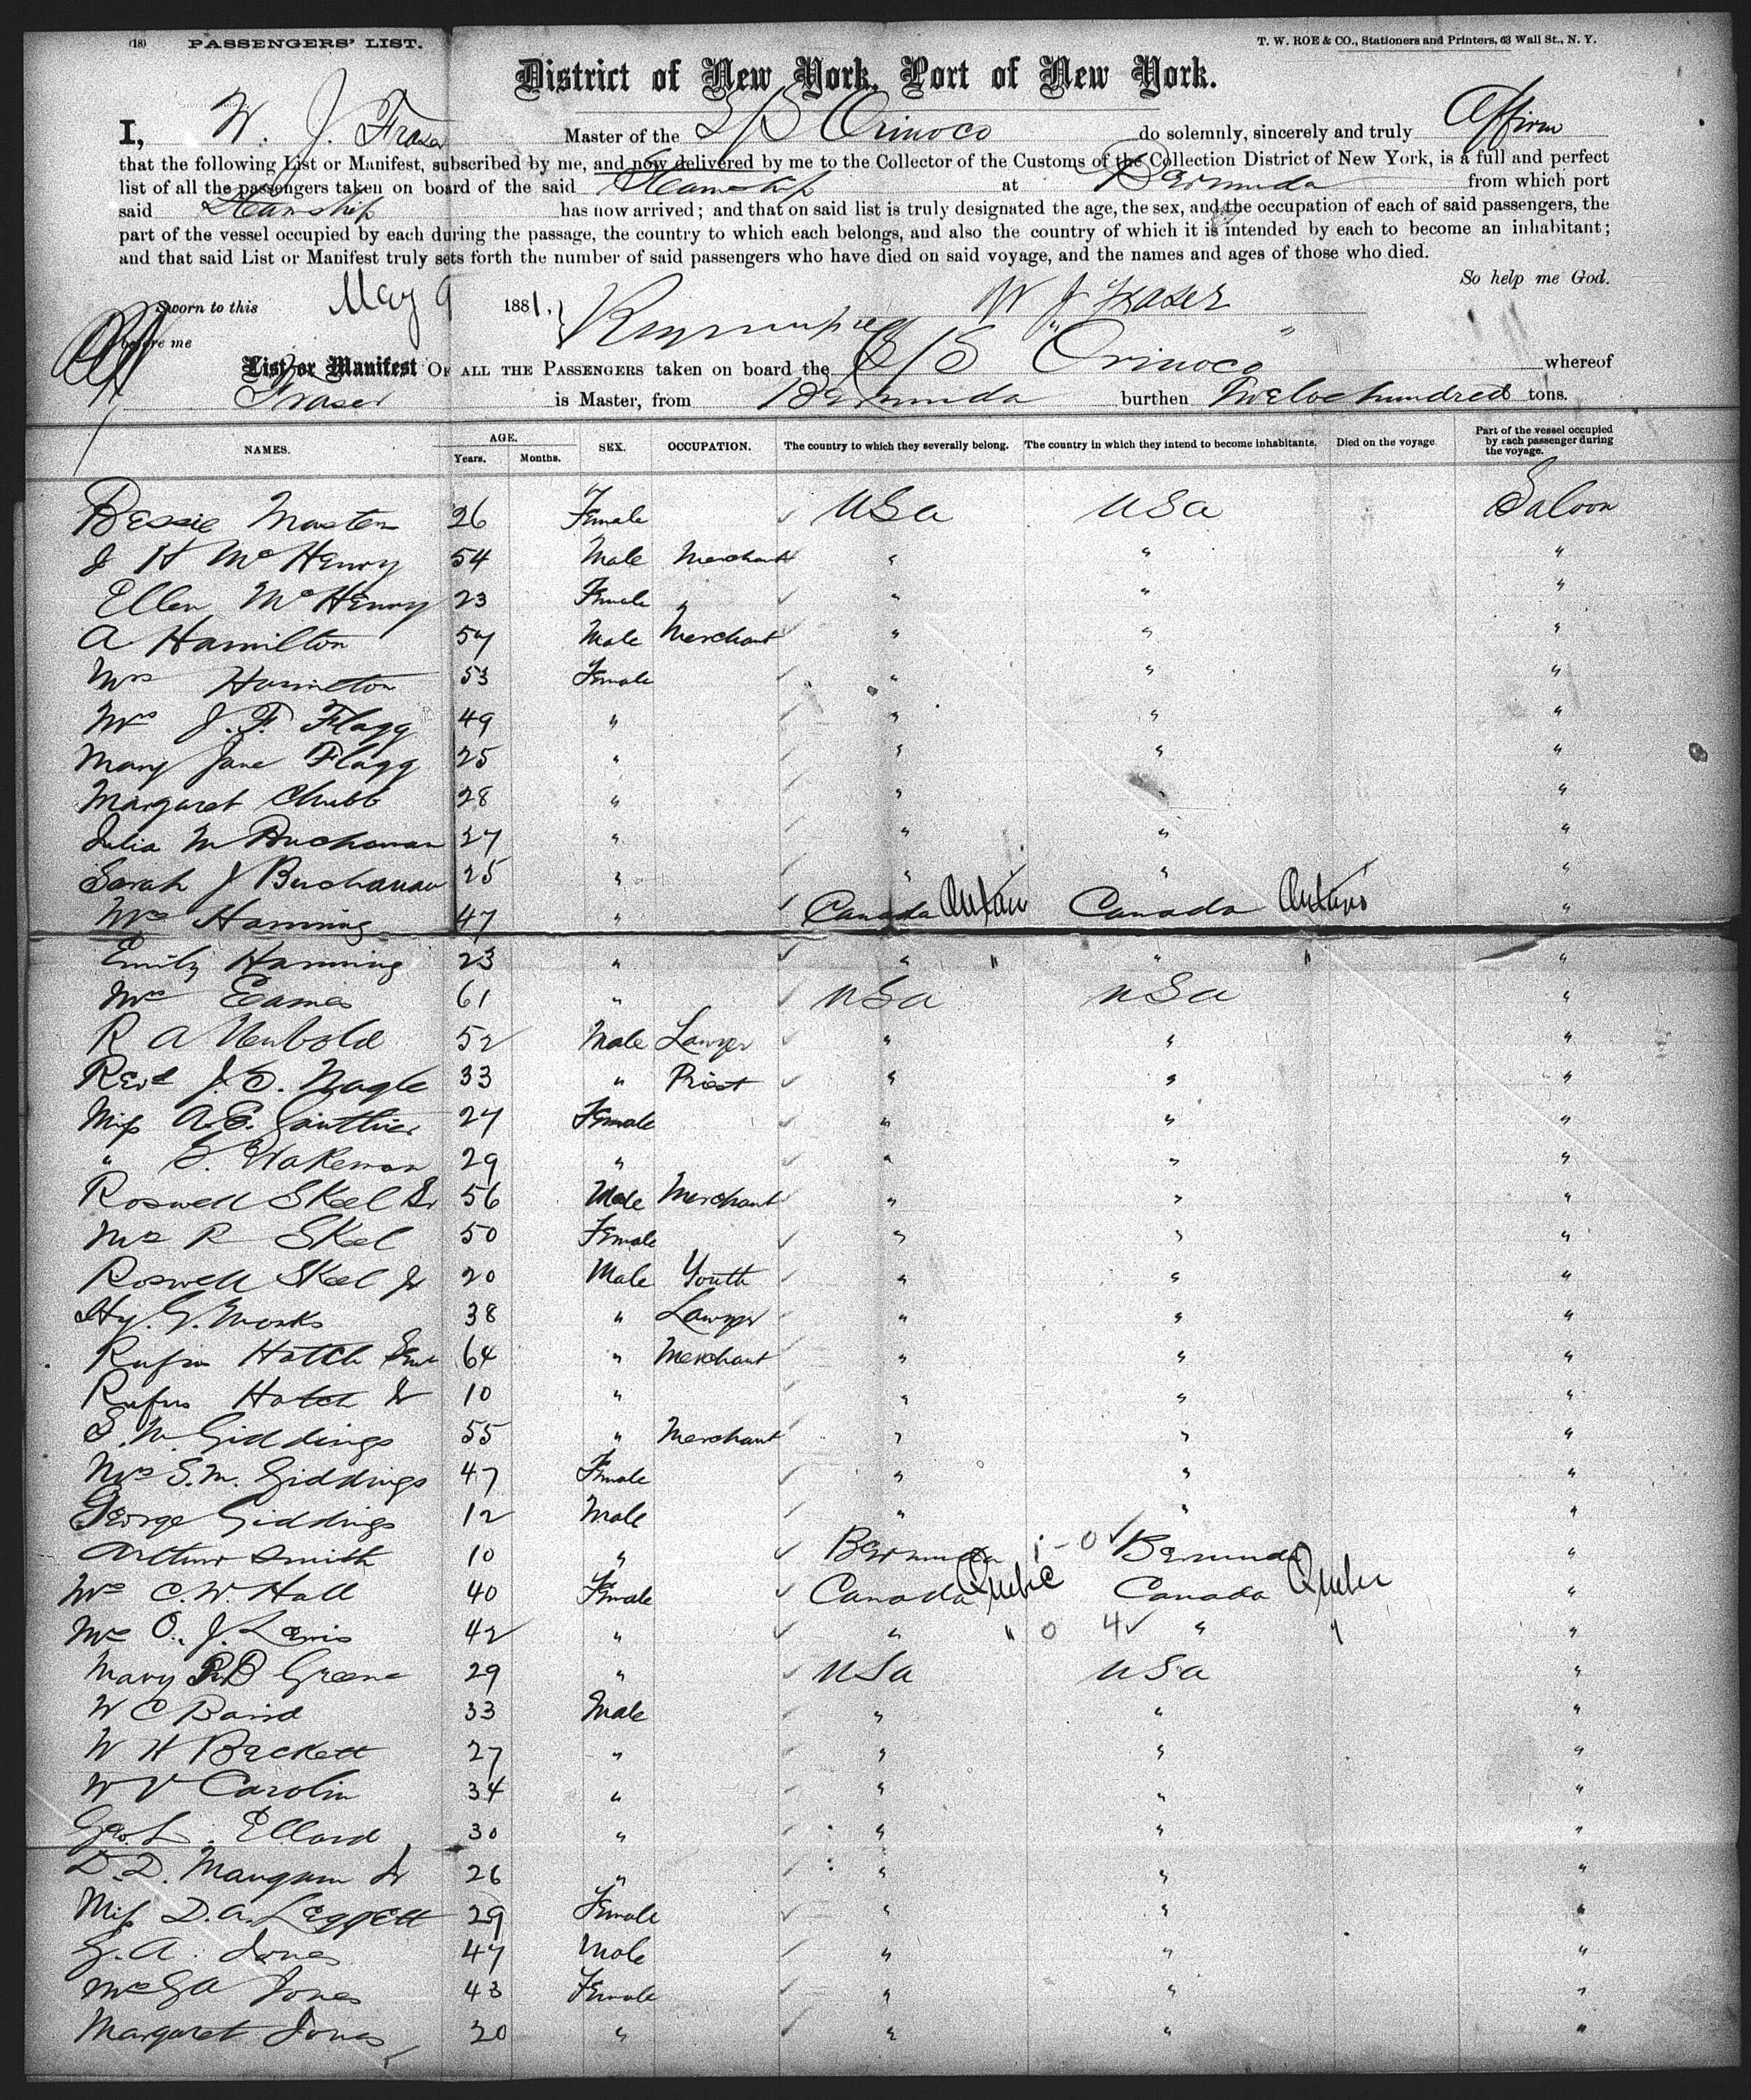 (18) PASSENGERS' LIST. T. W. ROE & CO., Stationers and Printers, 63 Wall St., N. Y.
District of New York, Port of New York.
I, W. J. Fraser Master of the S/S Orinoco do solemnly, sincerely and truly Affirm
that the following List or Manifest, subscribed by me, and now delivered by me to the Collector of the Customs of the Collection District of New York, is a full and perfect
list of all the passengers taken on board of the said Steamship at Bermuda from which port
said Steamship has now arrived; and that on said list is truly designated the age, the sex, and the occupation of each of said passengers, the
part of the vessel occupied by each during the passage, the country to which each belongs, and also the country of which it is intended by each to become an inhabitant;
and that said List or Manifest truly sets forth the number of said passengers who have died on said voyage, and the names and ages of those who died.
So help me God.
Sworn to this May 9 1881, W J Fraser
before me
List or Manifest OF ALL THE PASSENGERS taken on board the S/S Orinoco whereof
Fraser is Master, from Bermuda burthen Twelve hundred tons.
NAMES. AGE. Years. Months. SEX. OCCUPATION. The country to which they severally belong. The country in which they intend to become inhabitants. Died on the voyage Part of the vessel occupied by each passenger during the voyage.
Bessie Masten 26 Female USa USa Saloon
J H McHenry 54 Male Merchant " " "
Ellen McHenry 23 Female " " " "
A Hamilton 57 Male Merchant " " "
Mrs Hamilton 53 Female " " "
Mrs J. F. Flagg 49 " " " "
Mary Jane Flagg 25 " " " "
Margaret Chubb 28 " " " "
Julia M Buchanan 27 " " " "
Sarah J Buchanan 25 " " " "
Mrs Hanning 47 " Canada Ontario Canada Ontario "
Emily Hanning 23 " " " " " "
Mrs Eames 61 " USa USa "
R A Newbold 52 Male Lawyer " " "
Revd J. C. Nagle 33 " Priest " " "
Miss A. E. Gauthier 27 Female " " "
" Wakeman 29 " " " "
Roswell Skeel Sr 56 Male Merchant " " "
Mrs R Skeel 50 Female " " "
Roswell Skeel Jr 20 Male Youth " " "
Hy. G. Marks 38 " Lawyer " " "
Rufus Hatch Senr 64 " Merchant " " "
Rufus Hatch Jr 10 " " " "
S. M. Giddings 55 " Merchant " " "
Mrs S. M. Giddings 47 Female " " "
George Giddings 12 Male " " "
Arthur Smith 10 " Bermuda 1-0 Bermuda "
Mrs C. W. Hall 40 Female Canada Quebec Canada Quebec "
Mrs O. J. Lewis 42 " " " 0 4 " " "
Mary R B Greene 29 " USa USa "
W C Baird 33 Male " " "
W H Beckett 27 " " " "
W V Carolin 34 " " " "
Geo. L. Ellard 30 " " " "
D. D. Mangum Jr 26 " " " "
Miss D. A. Leggett 29 Female " " "
G. A. Jones 47 Male " " "
Mrs G A Jones 43 Female " " "
Margaret Jones 20 " " " "